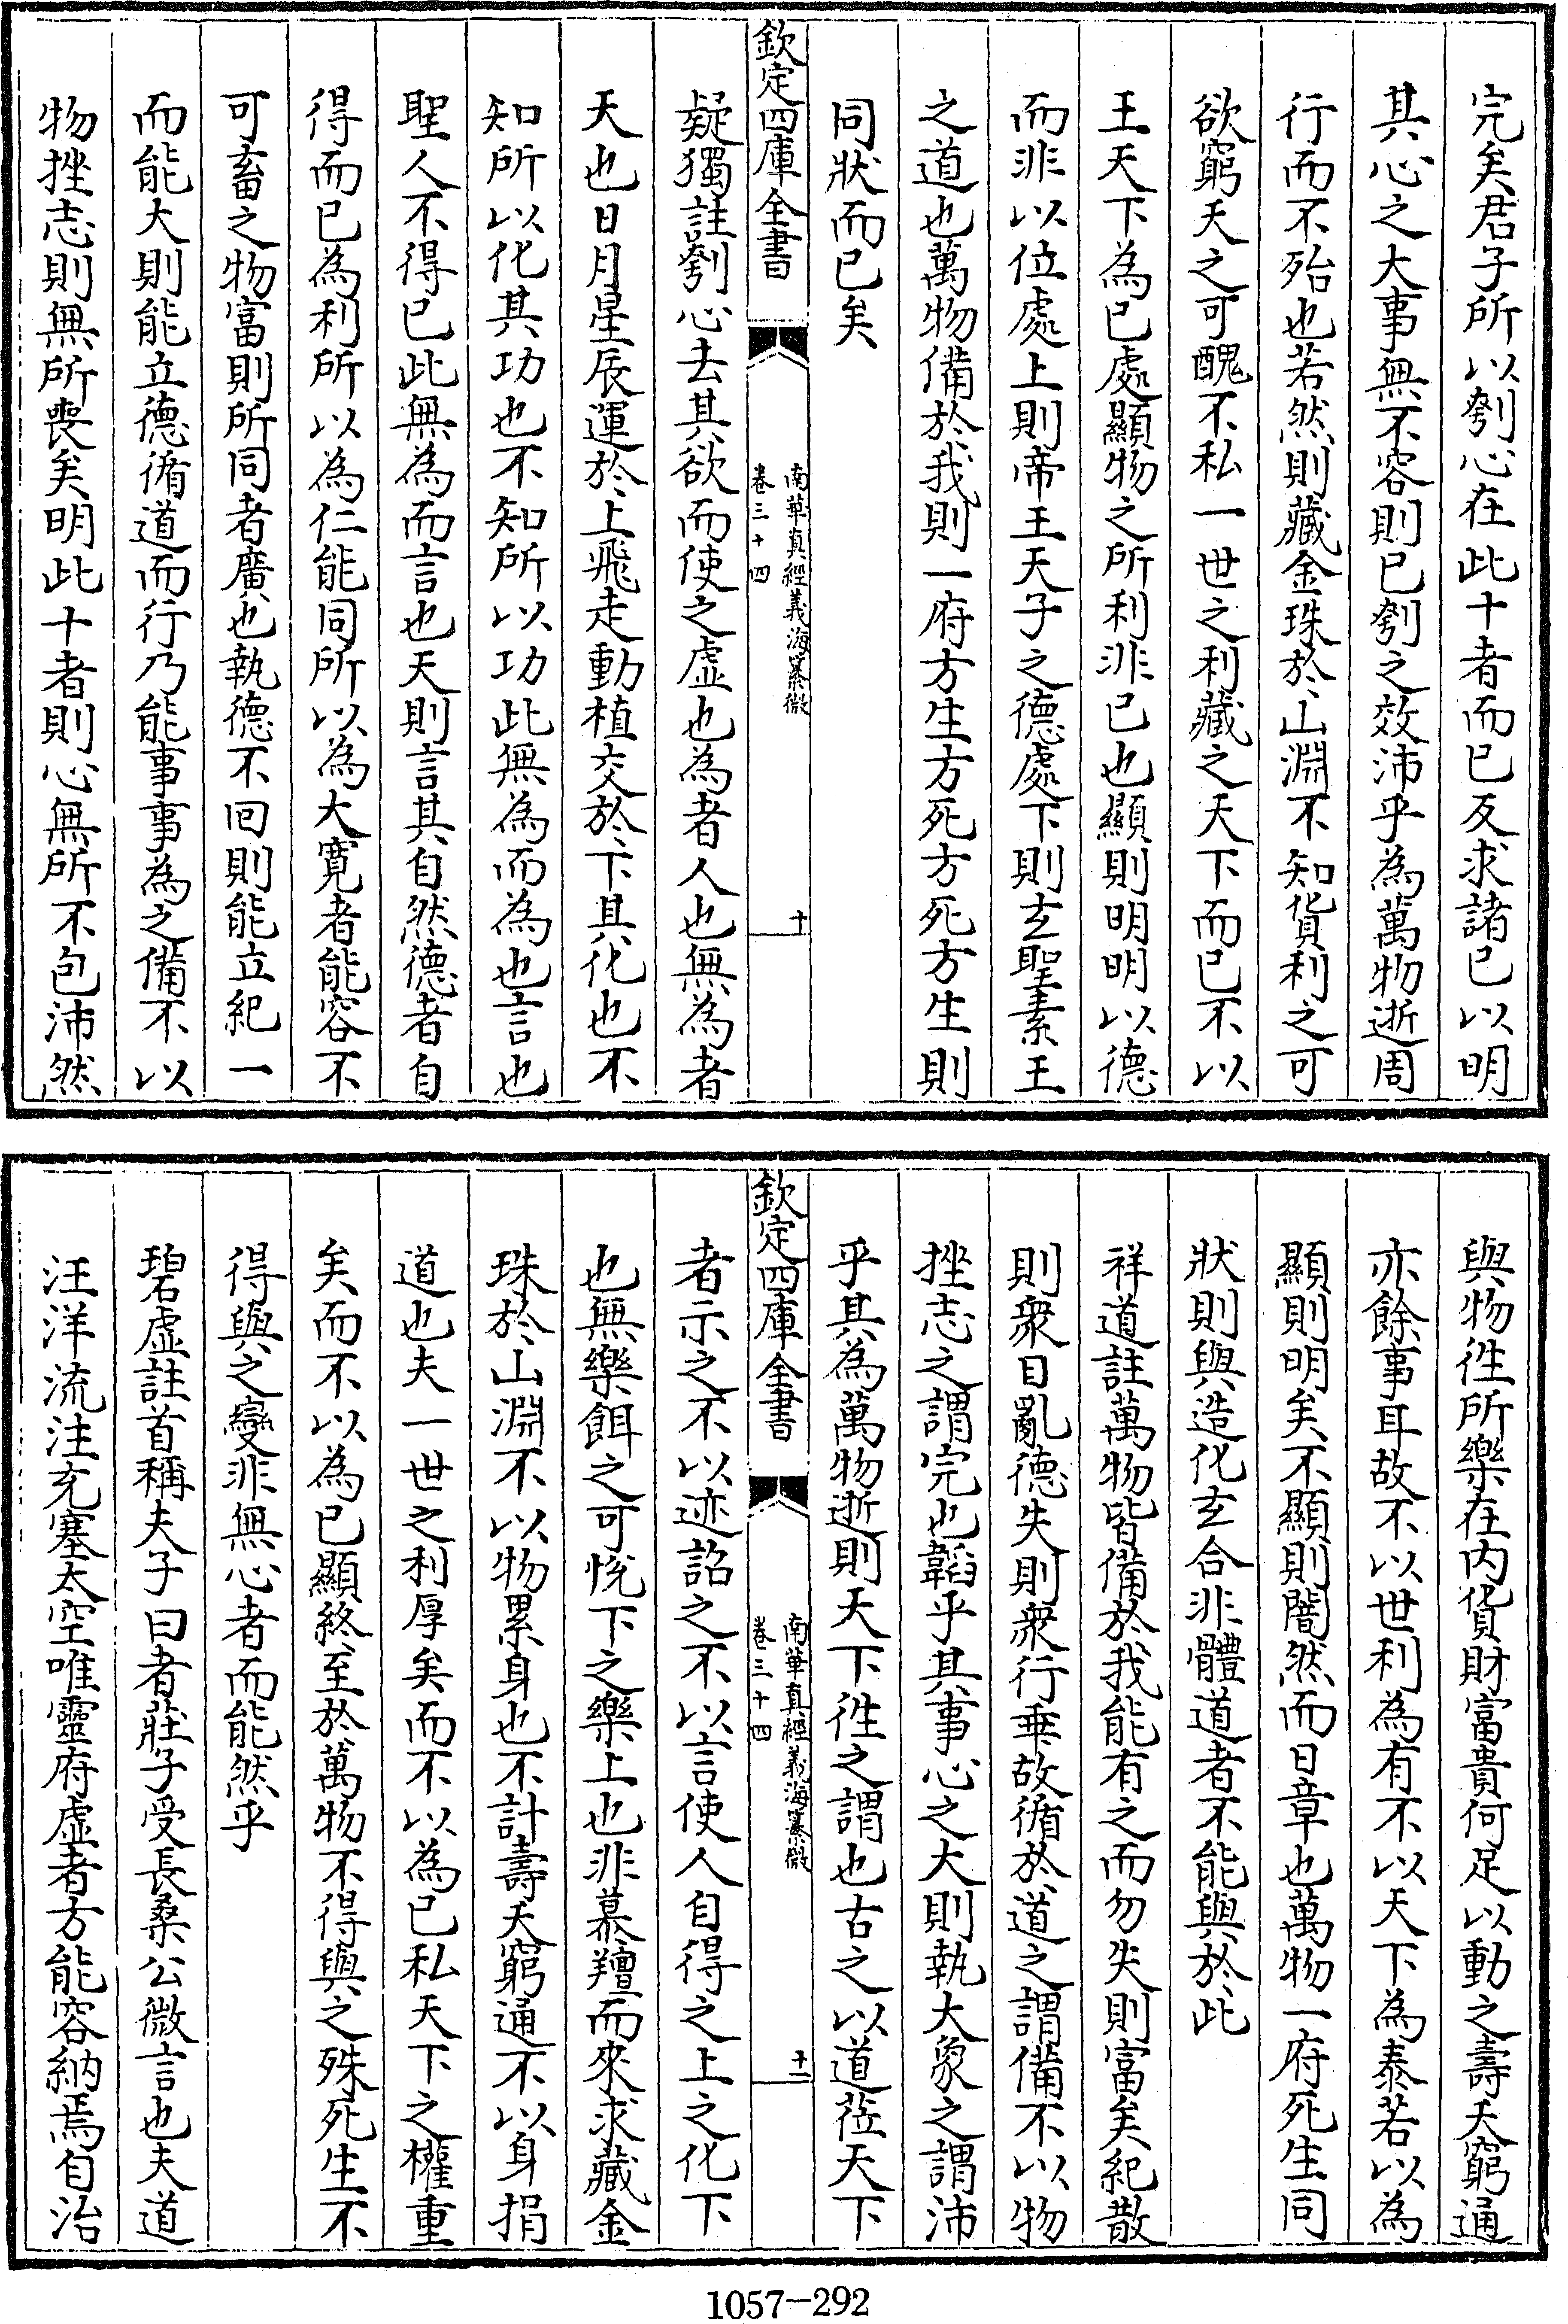 完矣君子所以刳心在此十者而已反求諸已以明
其心之大事無不容則已刳之效沛乎為萬物逝周
行而不殆也若然則藏金珠於山淵不知貨利之可
欲窮夭之可醜不私一世之利藏之天下而已不以
王天下為已處顯物之所利非已也顯則明明以德
而非以位處上則帝王天子之德處下則玄聖素王
之道也萬物備於我則一府方生方死方死方生則
同狀而已矣
欽定四庫全書
南華真經義海纂微
卷三十四
十
疑獨註刳心去其欲而使之虛也為者人也無為者
天也日月星辰運於上飛走動植交於下具化也不
知所以化其功也不知所以功此無為而為也言也
聖人不得已此無為而言也天則言其自然德者自
得而已為利所以為仁能同所以為大寛者能容不
可畜之物富則所同者廣也執德不回則能立紀一
而能大則能立德循道而行乃能事事為之備不以
物挫志則無所喪矣明此十者則心無所不包沛然
與物徃所樂在内貨財富貴何足以動之壽夭窮通
亦餘事耳故不以世利為有不以天下為泰若以為
顯則明矣不顯則闇然而日章也萬物一府死生同
狀則與造化玄合非體道者不能與於此
祥道註萬物皆備於我能有之而勿失則富矣紀散
則衆目亂德失則衆行乖故循於道之謂備不以物
挫志之謂完也韜乎其事心之大則執大象之謂沛
乎其為萬物逝則天下徃之謂也古之以道莅天下
欽定四庫全書
南華真經義海纂微
卷三十四
十一
者示之不以迹詔之不以言使人自得之上之化下
也無樂餌之可恱下之樂上也非慕羶而來求藏金
珠於山淵不以物累身也不計壽夭窮通不以身捐
道也夫一世之利厚矣而不以為已私天下之權重
矣而不以為已顯終至於萬物不得與之殊死生不
得與之變非無心者而能然乎
碧虛註首稱夫子曰者莊子受長桑公微言也夫道
汪洋流注充塞太空唯靈府虛者方能容納焉自治
1057-292